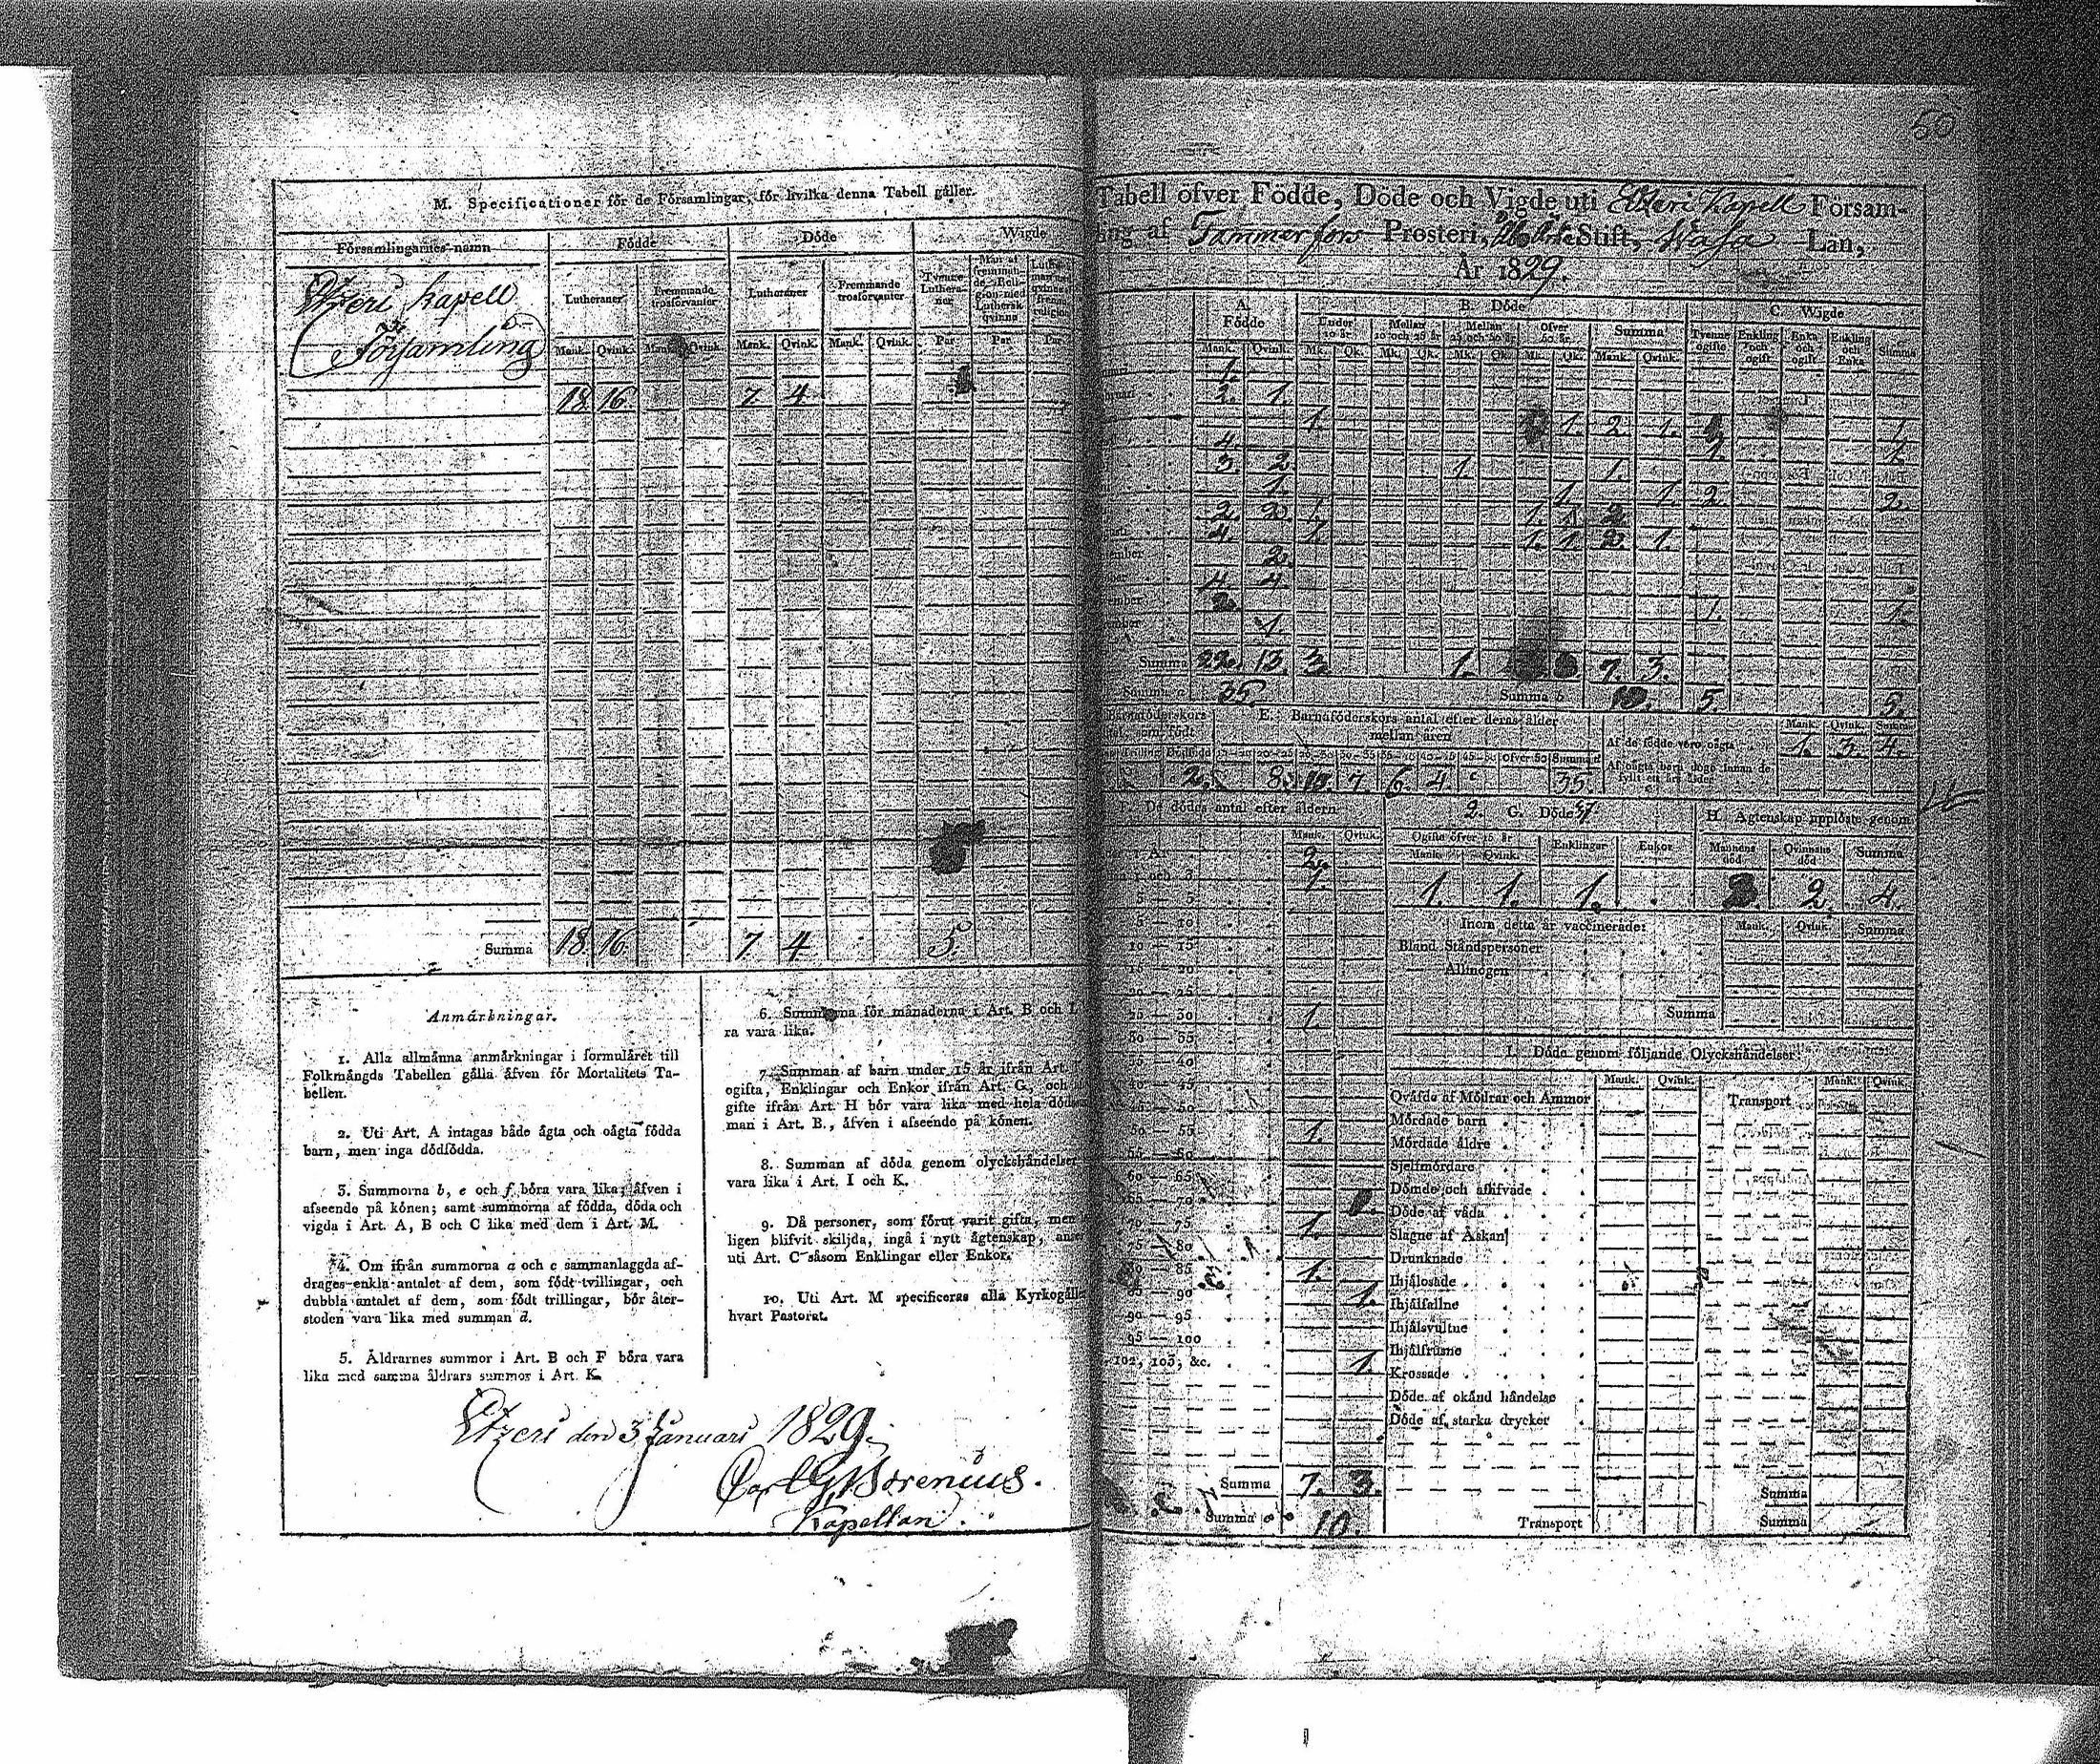 50
M. Specificationer för de Församlingar, för hvilka denna Tabell gäller.
Församlingarnes namn
Födde
Döde
Wigde
Lutheraner
Fremmande trosförvanter
Lutheraner
Fremmande trosförvanter
Tvenne Lutheraner
Män af fremmande Religion med Luthersk qvinna
Mank. Qvink. Mank. Qvink. Mank. Qvink. Mank. Qvink. Par Par Par
Etzeri kapell
Församling
18 16 7 4
Summa 18. 16. 7. 4 5.
Anmärkningar.
1. Alla allmänna anmärkningar i formuläret till
Folkmängds Tabellen gälla äfven för Mortalitets Ta-
bellen.
2. Uti Art. A intagas både ägta och oägta födda
barn, men inga dödfödda.
3. Summorna b, e och f böra vara lika; äfven i
afseende på könen; samt summorna af födda, döda och
vigda i Art. A, B och C lika med dem i Art. M.
4. Om ifrån summorna a och c sammanlaggda af-
drages enkla antalet af dem, som födt tvillingar, och
dubbla antalet af dem, som födt trillingar, bör åter-
stoden vara lika med summan d.
5. Åldrarnes summor i Art. B och F böra vara
lika med samma åldrars summor i Art. K.
6. Summorna för månaderna i Art. B och L
ra vara lika.
7. Summan af barn under 15 år ifrån Art.
ogifta, Enklingar och Enkor ifrån Art. G., och
gifte ifrån Art. H bör vara lika med hela
man i Art. B., äfven i afseende på könen.
8. Summan af döda genom olyckshändelser
vara lika i Art. I och K.
9. Då personer, som förut varit gifta, men
ligen blifvit skiljda, ingå i nytt ägtenskap,
uti Art. C såsom Enklingar eller Enkor.
10. Uti Art. M specificeras alla
hvart Pastorat.
Etzeri den 3 Januari 1829.
Carl G. Borenius.
Kapellan.
Tabell öfver Födde, Döde och Vigde uti Etzeri Kapell Försam-
ling af Tammerfors Prosteri, Åbo Stift, Wasa Län,
År 1829.
A. Födde
B. Döde
C. Wigde
Under 10 år.
Mellan 10 och 25 år
Mellan 25 och 50 år
Öfver 50 år.
Summa
Tvenne ogifte
Enkling och ogift
Enka och ogift
Enkling och Enka
Summa
Mank. Qvink. Mk. Qk. Mk. Qk. Mk. Qk. Mk. Qk. Mank. Qvink.
1.
2. 1.
1. 1. 2. 1. 1.
4. 1. 1.
3. 2 1. 1.
1. 1. 1. 2. 2.
2. 2. 1. 1. 2
4. 1. 1. 1. 2. 1.
2.
4 4
2. 1. 1.
1.
Summa 22. 13. 3. 1. 7. 3.
Summa a 35. Summa b 10. 5. 5.
E. Barnaföderskors antal efter deras ålder
mellan åren
Dödfödde
Öfver 50 Summa
2. 8. 10. 7. 6. 4. 35.
Mank. Qvink. Summa
Af de födde voro oägta 1. 3. 4.
Af oägta barn dogo innan de
fyllt ett års ålder
F. De dödes antal efter åldern
Mank. Qvink.
2.
1.
5 — 10
10 — 15
15 — 20
20 — 25
25 — 30 1.
30 — 35
35 — 40
40 — 45
45 — 50
50 — 55 1.
55 — 60
60 — 65
65 — 70
70 — 75 1.
75 — 80
80 — 85 1.
85 — 90 1.
90 — 95
95 — 100
102, 103, &c. 1.
Summa 7. 3.
Summa 10.
G. Döde
Ogifta öfver 15 år
Enklingar
Enkor
Mank. Qvink.
1. 1. 1.
H. Ägtenskap upplöste genom
Mannens död
Qvinnans död
Summa
2. 4.
Inom detta år vaccinerade:
Mank. Qvink. Summa
Bland Ståndspersoner
— Allmogen
Summa
I. Döde genom följande Olyckshändelser
Mank. Qvink. Mank. Qvink.
Qväfde af Mödrar och Ammor
Transport
Mördade barn
Mördade äldre
Sjelfmördare
Dömde och aflifvade
Döde af våda
Slagne af Åskan
Drunknade
Ihjälosade
Ihjälfallne
Ihjälsvultne
Ihjälfrusne
Krossade
Döde af okänd händelse
Döde af starka drycker
Summa
Transport
Summa